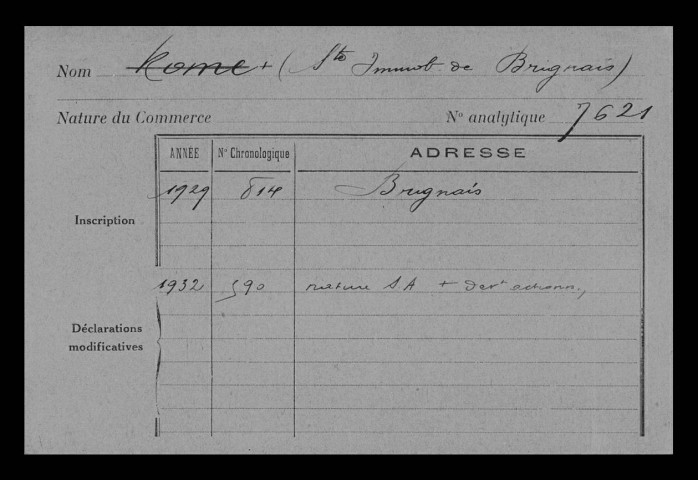 Nom Rome + (Sté Immob. de Brignais)
Nature du Commerce N° analytique 7621
ANNÉE N° Chronologique ADRESSE
Inscription 1929 814 Brignais
1932 590 nature S A +
Déclarations
modificatives